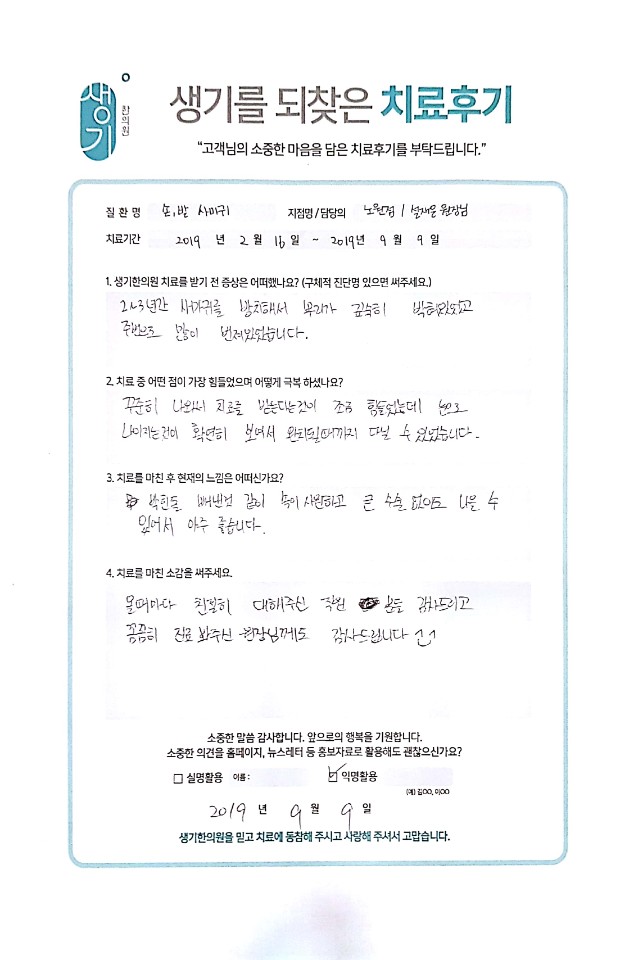 생기
한의원
생기를 되찾은 치료후기
"고객님의 소중한 마음을 담은 치료후기를 부탁드립니다."
질 환 명 손, 발 사마귀 지점명 / 담당의 노원점 / 설재은 원장님
치료기간 2019 년 2 월 16 일 ~ 2019년 9 월 9 일
1. 생기한의원 치료를 받기 전 증상은 어떠했나요? (구체적 진단명 있으면 써주세요.)
2~3년간 사마귀를 방치해서 뿌리가 깊숙히 박혀있었고
주변으로 많이 번져있었습니다.
2. 치료 중 어떤 점이 가장 힘들었으며 어떻게 극복 하셨나요?
꾸준히 나와서 치료를 받는다는것이 조금 힘들었는데 눈으로
나아지는것이 확연히 보여서 완치될때까지 다닐 수 있었습니다.
3. 치료를 마친 후 현재의 느낌은 어떠신가요?
박힌돌 빼낸것 같이 속이 시원하고 큰 수술 없이도 나을 수
있어서 아주 좋습니다.
4. 치료를 마친 소감을 써주세요.
올때마다 친절히 대해주신 직원 분들 감사드리고
꼼꼼히 진료 봐주신 원장님께도 감사드립니다
소중한 말씀 감사합니다. 앞으로의 행복을 기원합니다.
소중한 의견을 홈페이지, 뉴스레터 등 홍보자료로 활용해도 괜찮으신가요?
실명활용 이름 : 익명활용
(예) 김OO, 이OO
2019 년 9 월 9 일
생기한의원을 믿고 치료에 동참해 주시고 사랑해 주셔서 고맙습니다.